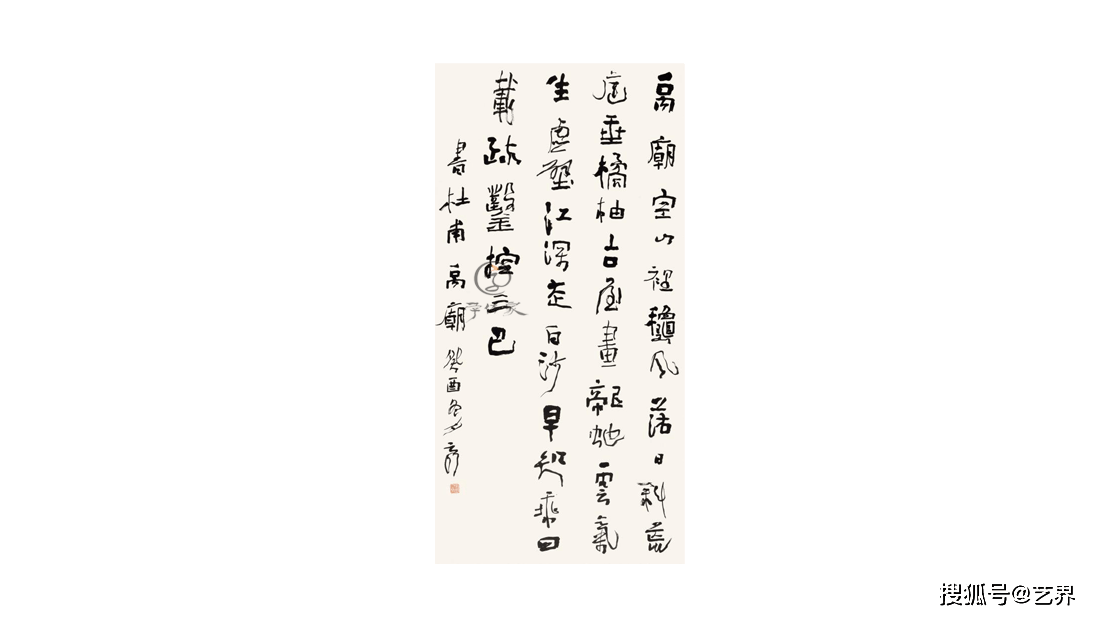 禹廟空山裡龝風落日斜荒
庭垂橘柚古屋畫龍虵雲氣
生虛壁江深走白沙早知乘四
載疏鑿控三巴
書杜甫禹廟癸酉冬
搜狐号@艺界